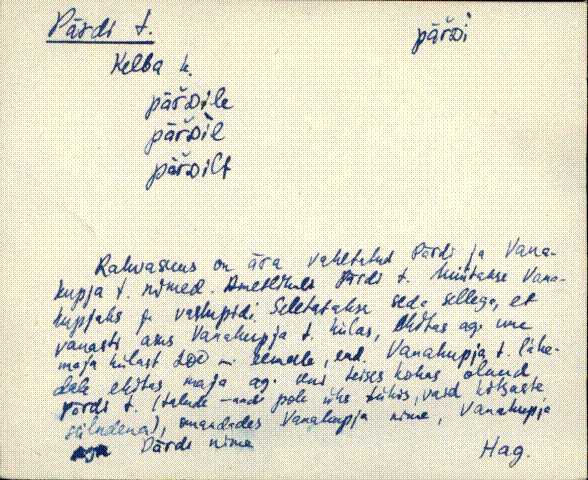 Pärdi t. pär̆Di
Kelba k.
pär̆Dile
pär̆Dil
pär̆Dilt
Rahvasuus on ära vahetatud Pärdi ja Vana-
kupja t. nimed. Ametlikult Pärdi t. hüütakse Vana-
kupjaks ja vastupidi. Seletatakse seda sellega, et
vanasti asus Vanakupja t. külas, ehitas aga uue
maja külast 200 m eemale, end. Vanakupja t. lähe-
dale ehitas maja aga uni teises kohas olnud
Pärdi t. (talude -ande pole ühe tükis, vaid kitsaste
siiludena), omandades Vanakupja nime, Vanakupja
aga Pärdi nime
Hag.